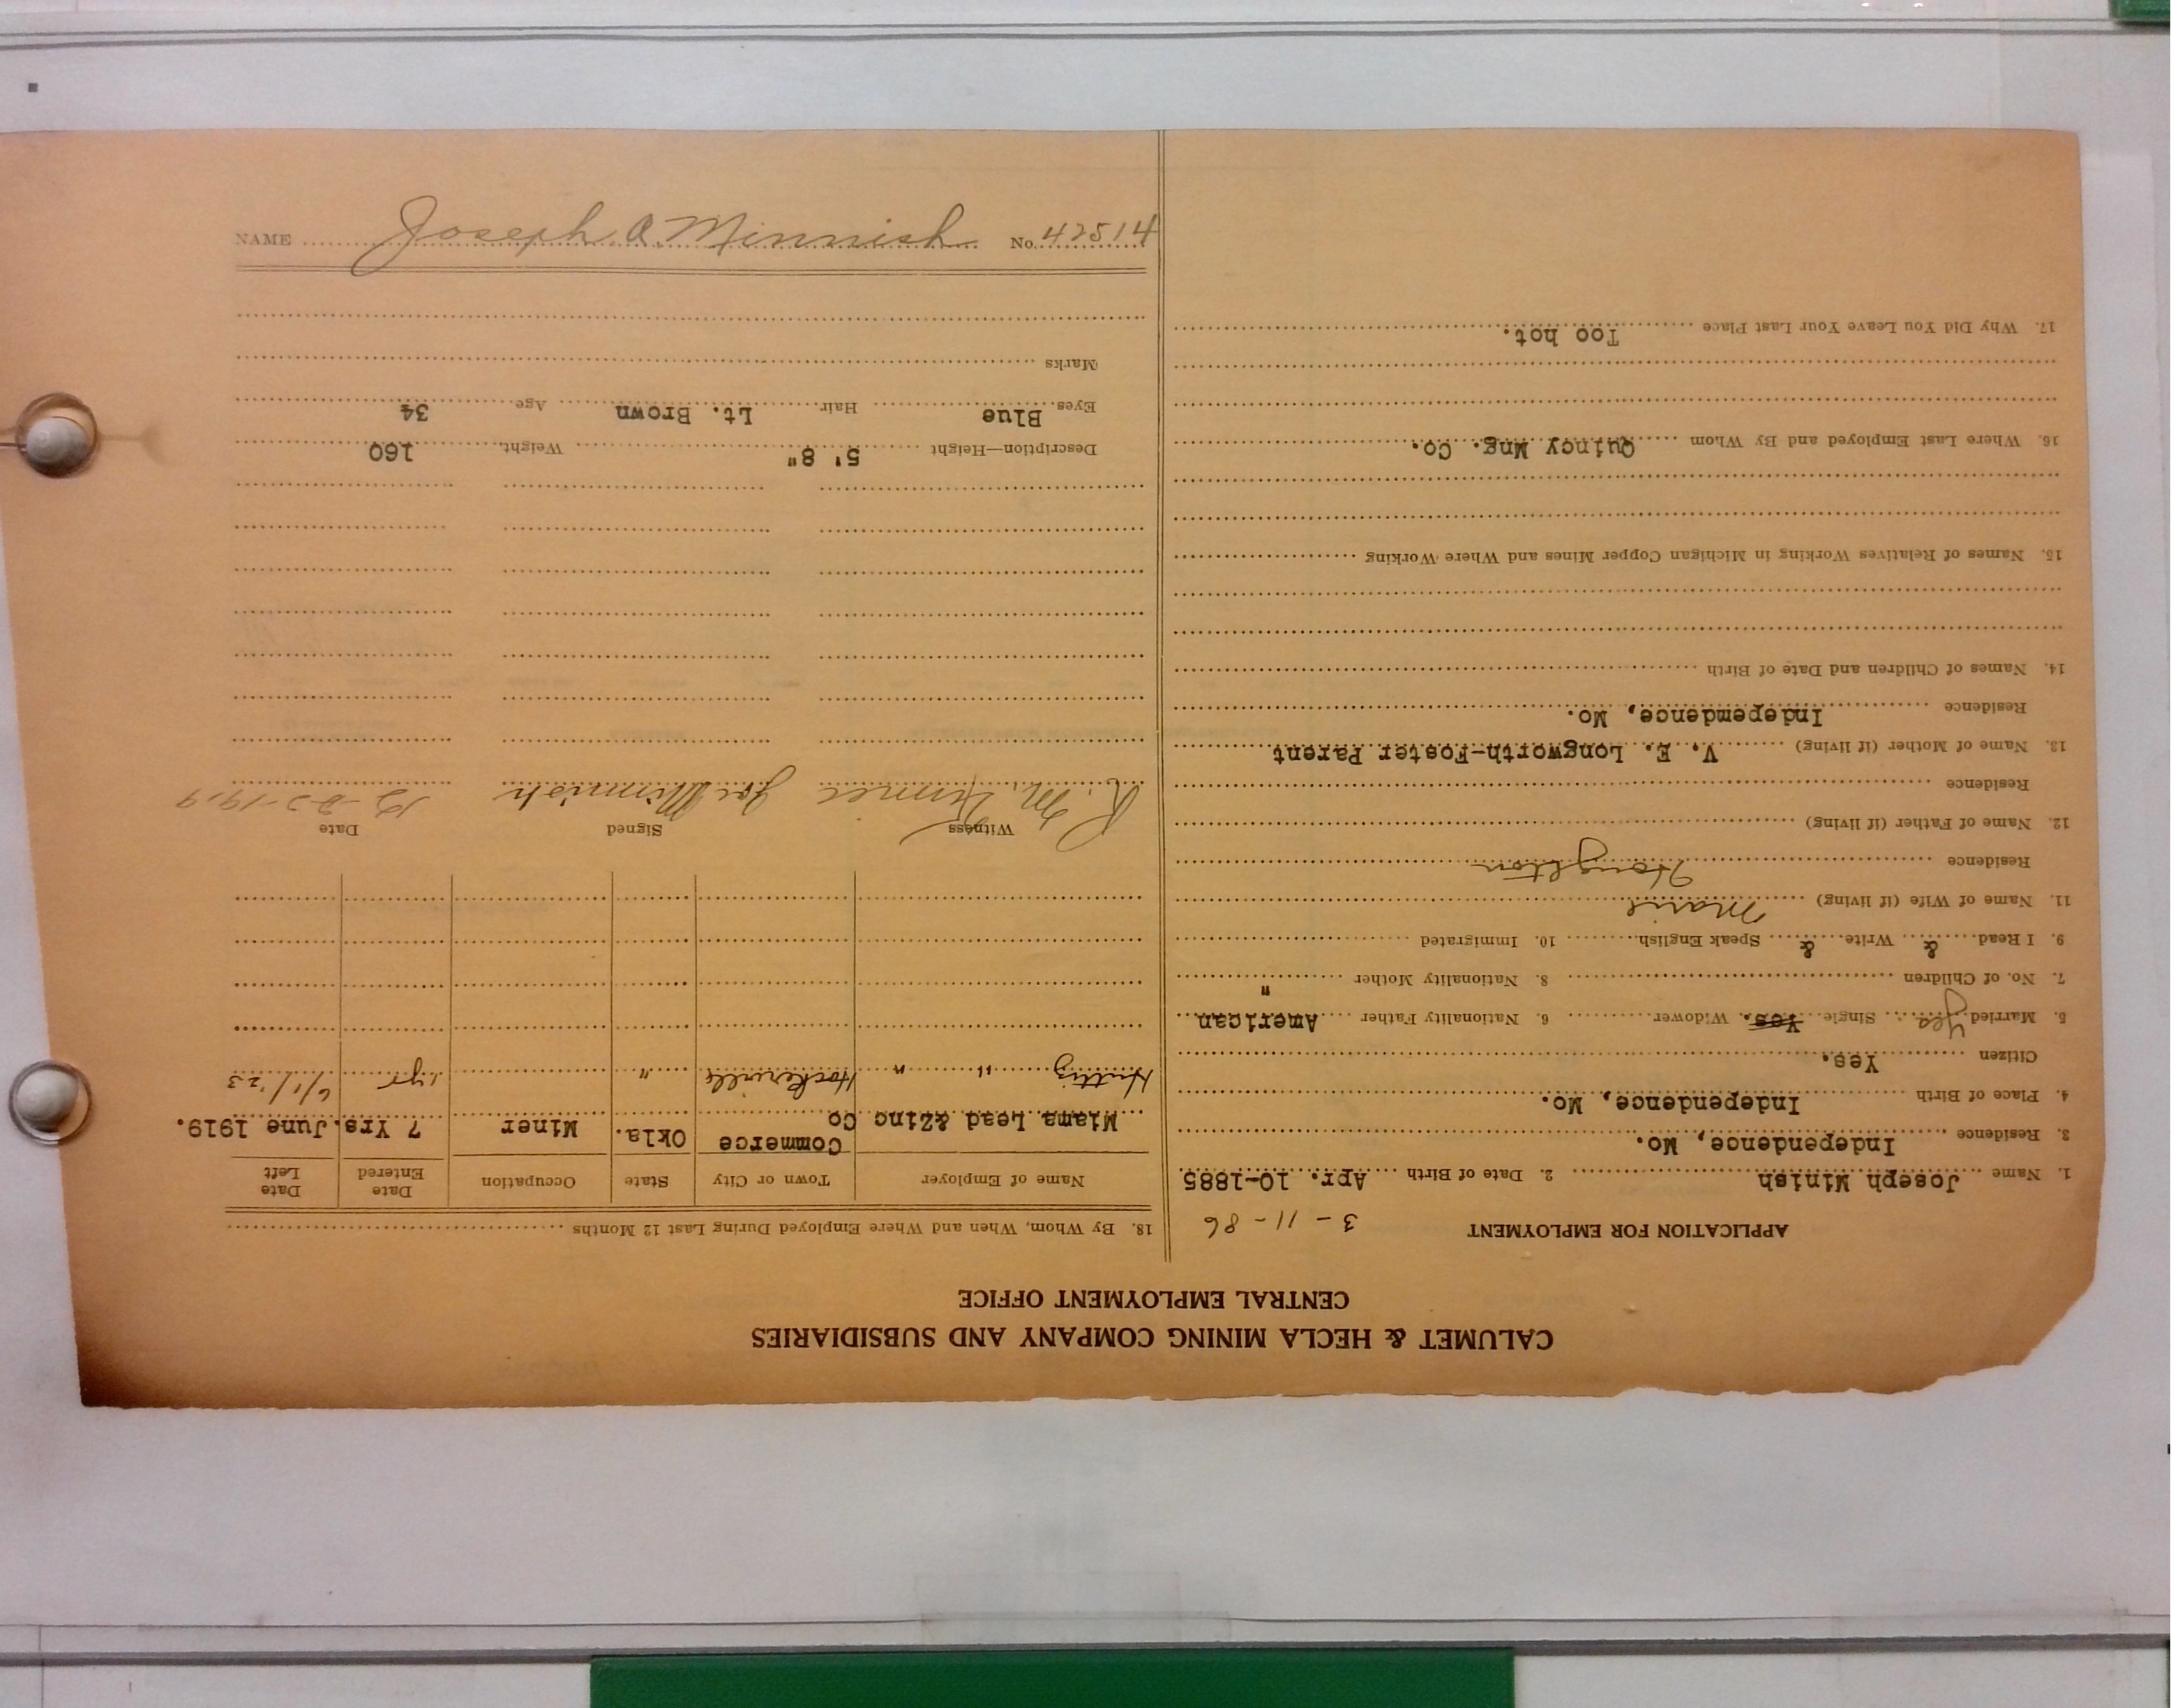 CALUMET & HECLA MINING COMPANY AND SUBSIDIARIES
CENTRAL EMPLOYMENT OFFICE
APPLICATION FOR EMPLOYMENT
3-11-86
1. Name Joseph Minish 2. Date of Birth Apr. 10-1885
3. Residence Independence, Mo.
4. Place of Birth Independence, Mo.
Citizen Yes.
5. Married yes Single Yes. Widower 6. Nationality Father American
7. No. of Children 8. Nationality Mother "
9. I Read & Write & Speak English 10. Immigrated
11. Name of Wife (if living) Marie
Residence Houghton
12. Name of Father (if living)
Residence
13. Name of Mother (if living) V. E. Longworth-Foster Parent
Residence Independence, Mo.
14. Names of Children and Date of Birth
15. Names of Relatives Working in Michigan Copper Mines and Where Working
16. Where Last Employed and By Whom Quincy Mng. Co.
17. Why Did You Leave Your Last Place Too hot.
18. By Whom, When and Where Employed During Last 12 Months
Name of Employer Town or City State Occupation Date Entered Date Left
Miama Lead &Zinc Co Commerce Okla. Miner 7 Yrs. June 1919.
" " Hockerville " 1 yr 6/1/'23
Witness Signed Date
R. M. Joe Minnish 1919
Description—Height 5' 8" Weight 160
Eyes Blue Hair Lt. Brown Age 34
Marks
NAME Joseph A. Minnish No. 42514